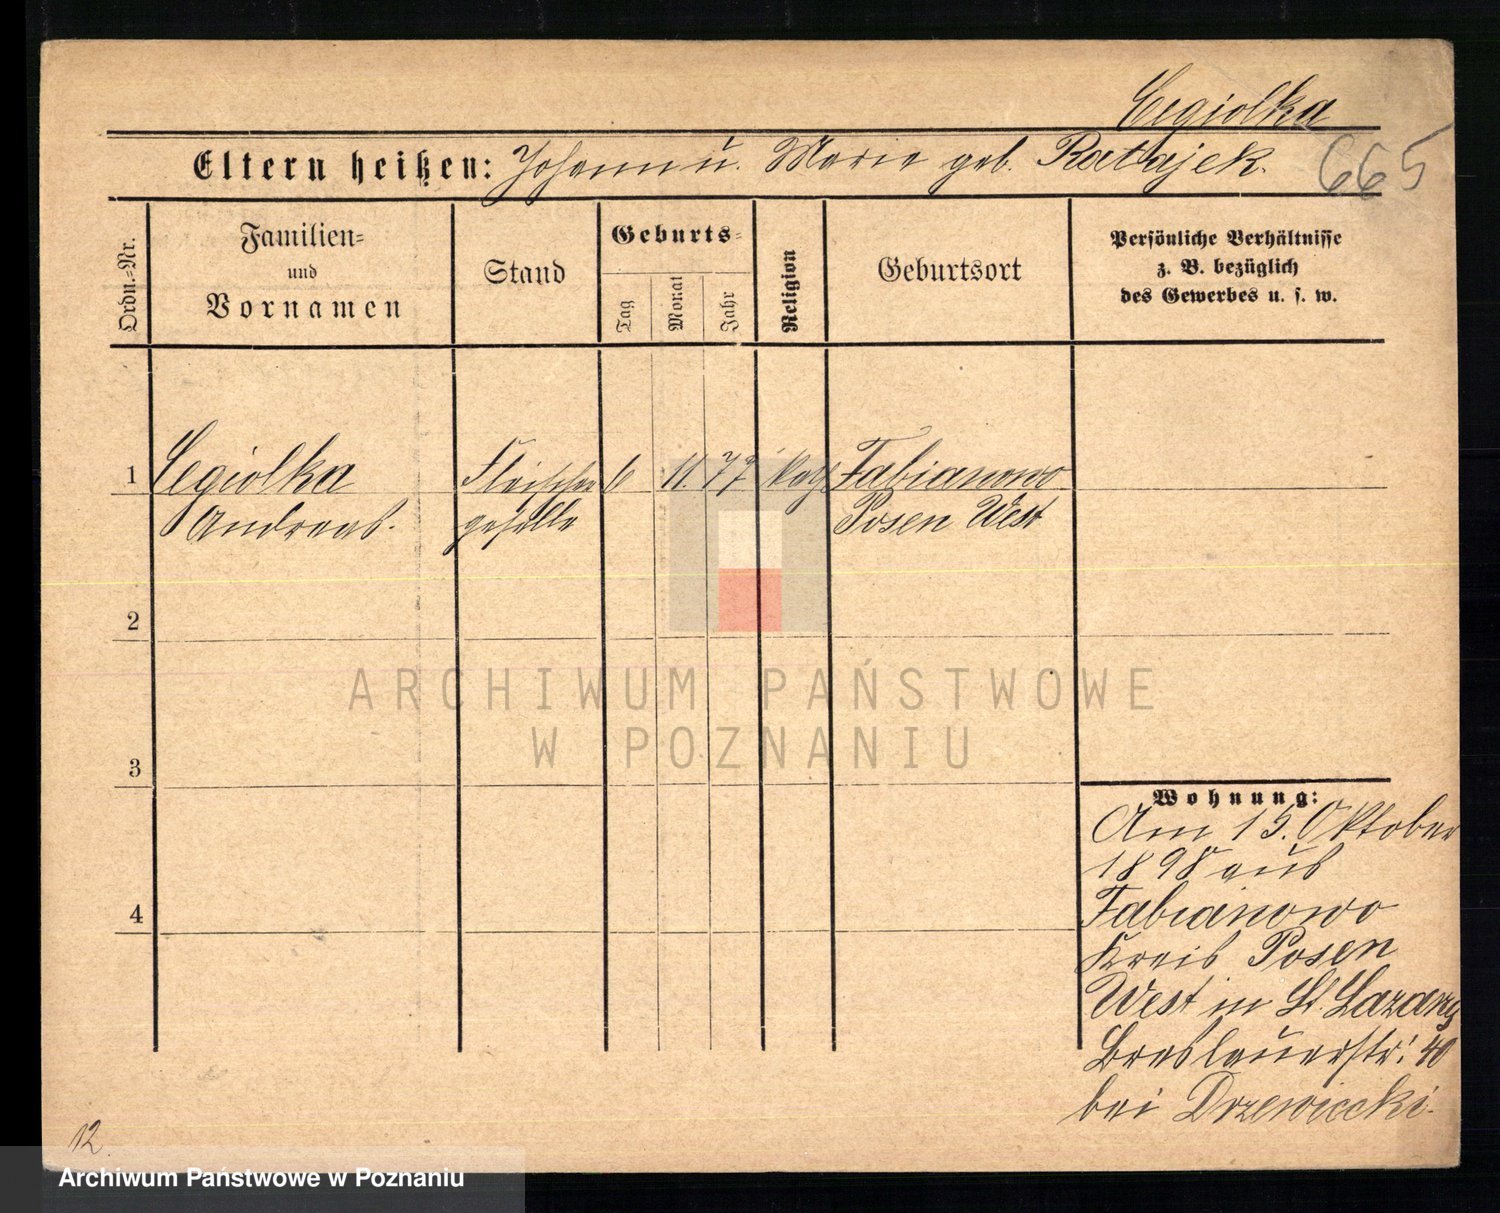 Cegiolka
Eltern heißen: Johann u. Marie geb. Ratajek.
665
Ordn.=Nr.
Familien=
und
Vornamen
Stand
Geburts=
Tag
Monat
Jahr
Religion
Geburtsort
Persönliche Verhältnisse
z. B. bezüglich
des Gewerbes u. s. w.
1 Cegiolka Fleischer 6 11 77 kath Fabianowo
Andreas. geselle Posen West
2
3
4
Wohnung:
Am 15. Oktober
1898 aus
Fabianowo
Kreis Posen
West in St. Lazarz
Breslauerstr. 40
bei Drzewiecki.
12.
ARCHIWUM PAŃSTWOWE
W POZNANIU
Archiwum Państwowe w Poznaniu